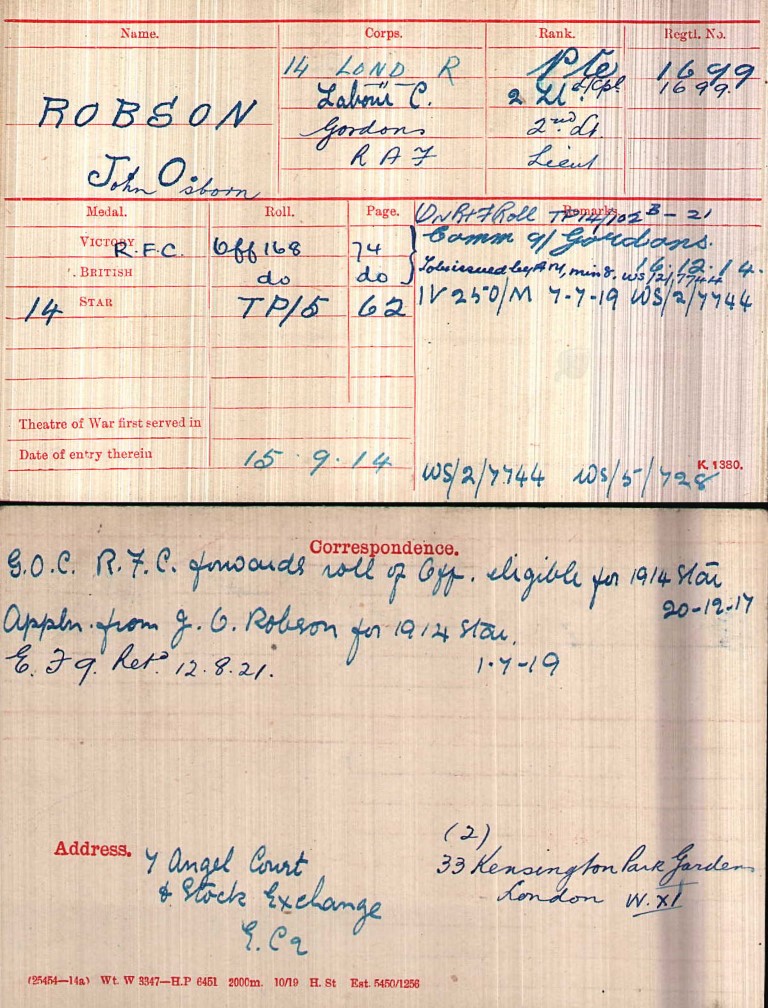 Name. Corps. Rank. Regtl. No.
14 LOND R Pte 1699
ROBSON
Labour C. 2 Lt A/Cpl 1699.
Gordons 2nd Lt.
John Osborn
R A F Lieut
Medal. Roll. Page. Remarks.
On R+F Roll TP14/102B - 21
VICTORY R.F.C. Off 168 74 Comm g/ Gordons.
16.12.14.
BRITISH do do To be issued by A M, min 8. WS/2/7744
14 STAR TP/5 62 IV 250/M 7-7-19 WS/2/7744
Theatre of War first served in
Date of entry therein 15.9.14
WS/2/7744 WS/5/728
K. 1380.
Correspondence.
G.O.C. R.F.C. forwards roll of Off. eligible for 1914 Star
20-12-17
Appln. from J. O. Robson for 1914 Star.
1-7-19
E. F 9. Ret. 12.8.21.
Address.
7 Angel Court
& Stock Exchange
E.C2
(2)
33 Kensington Park Gardens
London W.XI
(25454—14a) Wt. W 3347—H.P 6451 2000m. 10/19 H. St Est. 5450/1256